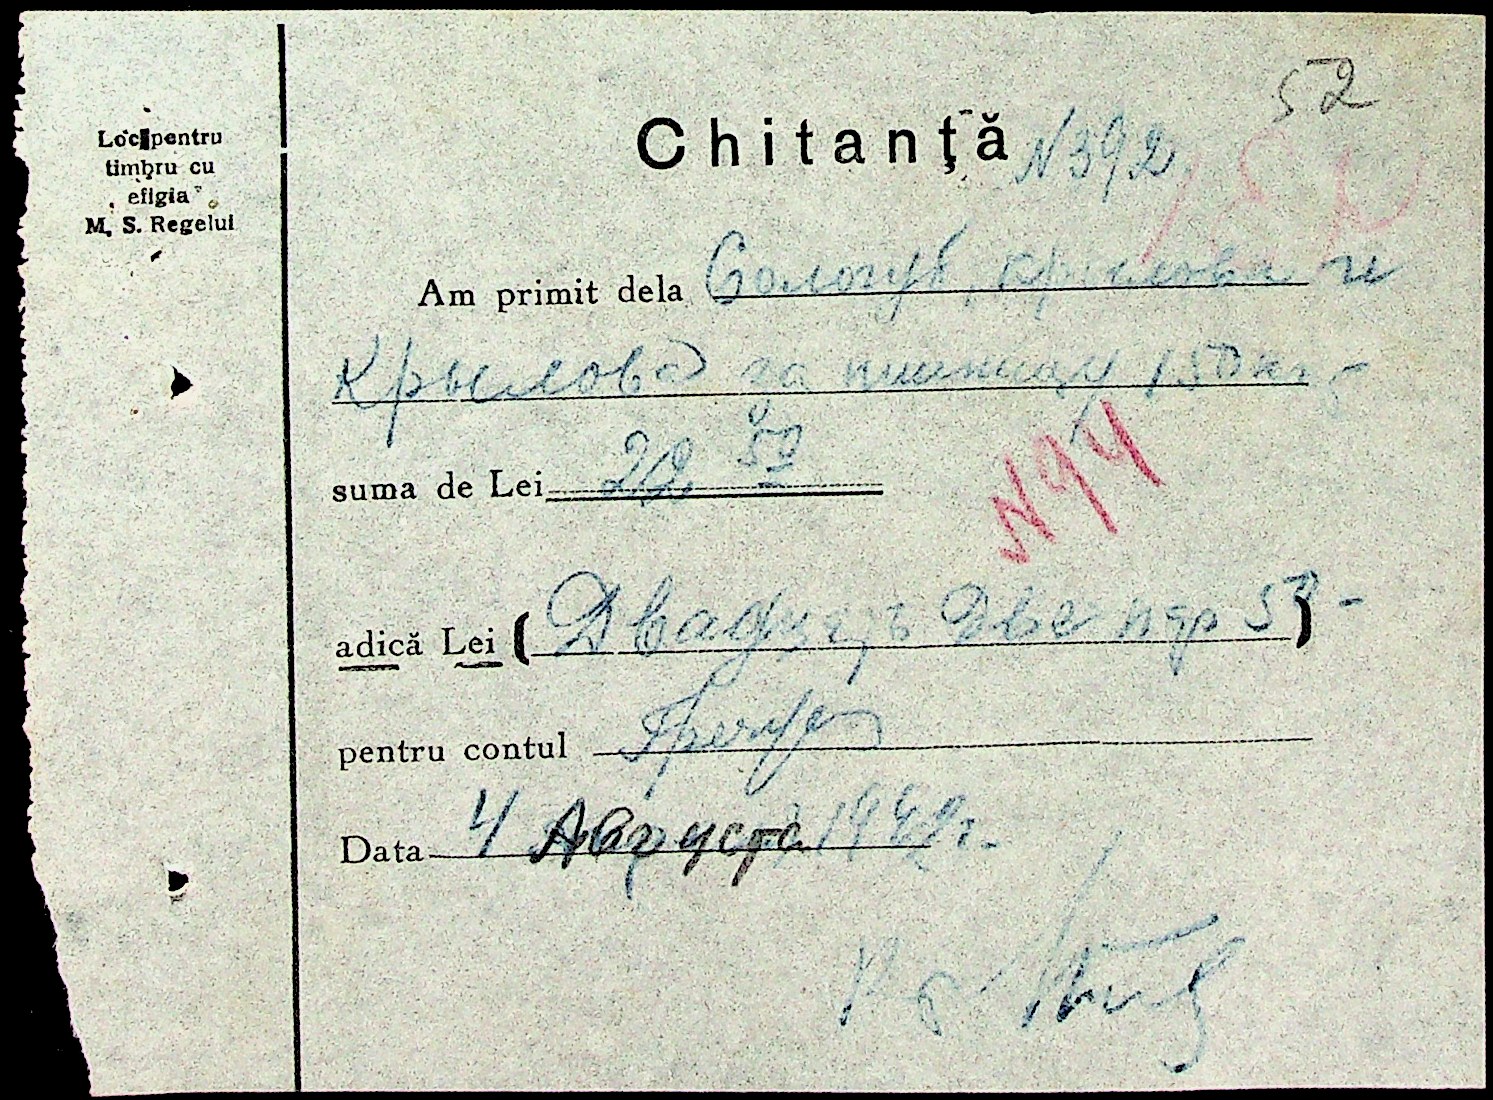 52
Loc pentru
timbru cu
efigia
M. S. Regelui
Chitanță N392
Am primit dela Сологуб, Крылова и
Крылова за пшеницу 150 кг
suma de Lei 22 50
N94
adică Lei (Двадцать две 50)
pentru contul
Data 4 Августа 1942 г.